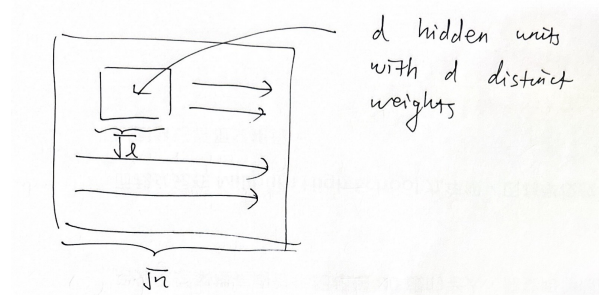 d hidden units
with d distinct
weights
√l
√n